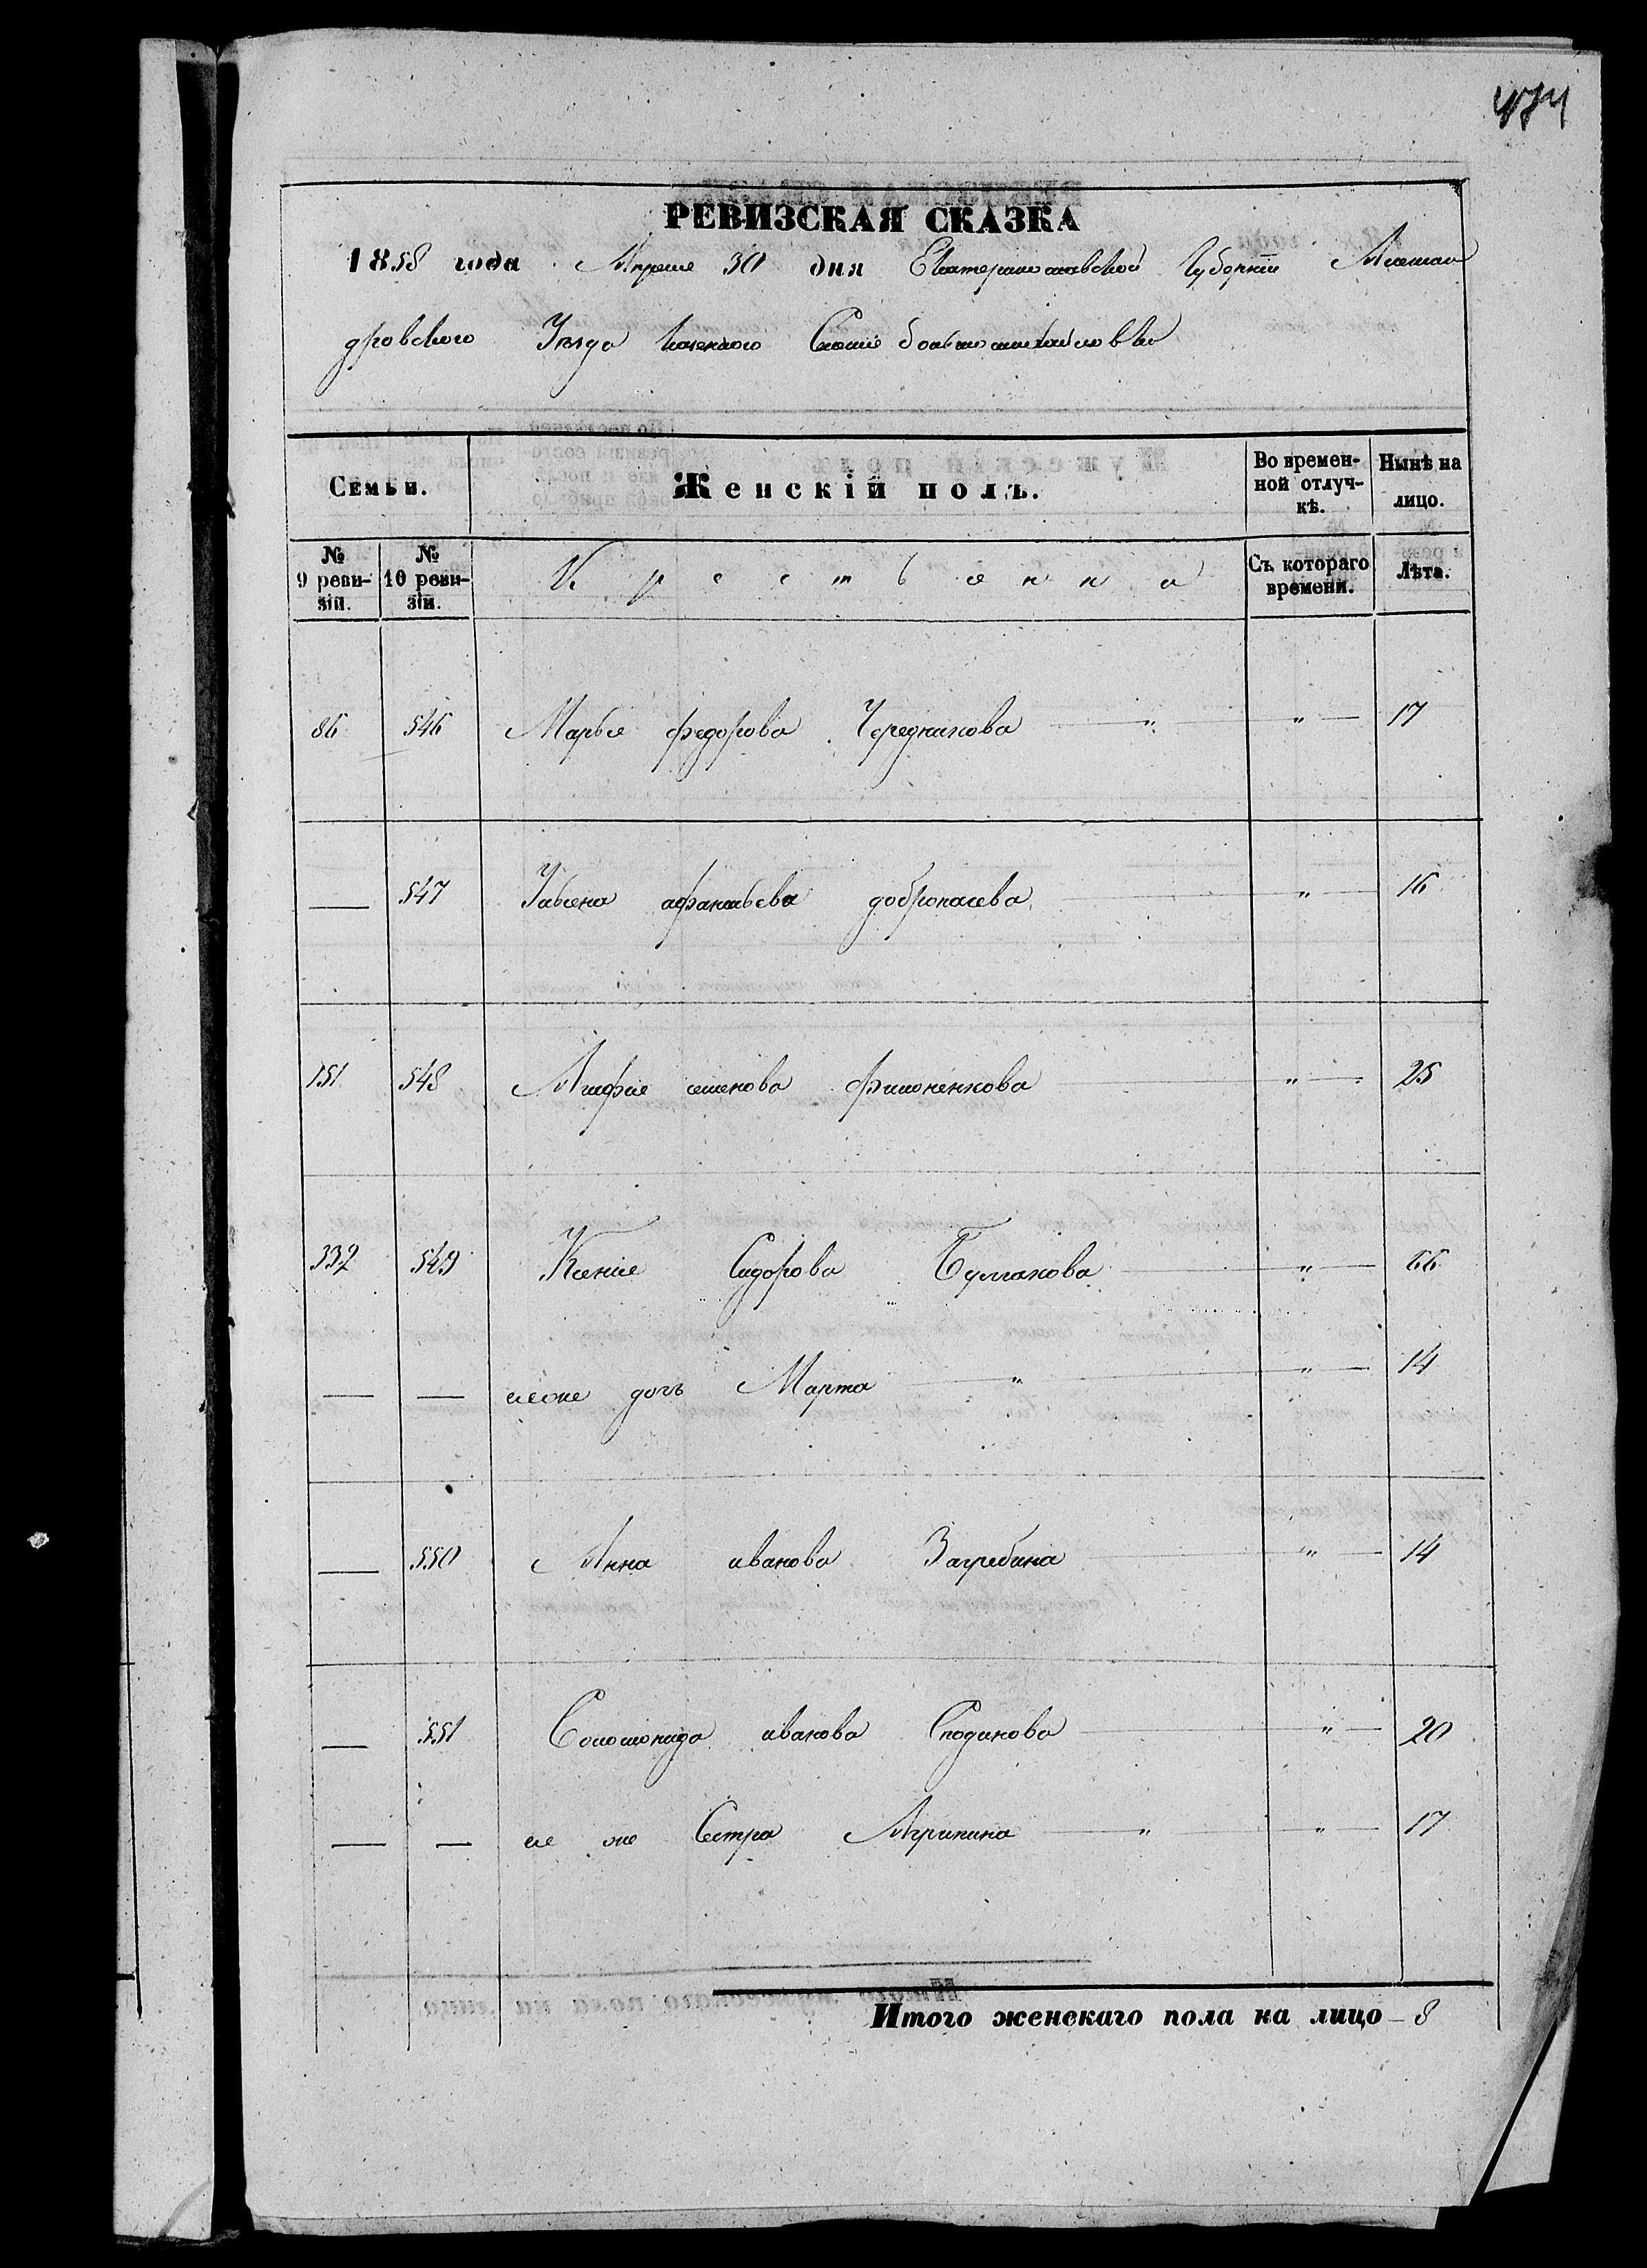 474
РЕВИЗСКАЯ СКАЗКА
1858 года Апреля 30 дня Екатеринославской Губернии Алексан
дровского Уезда казенного Селения большомихайловки
Семьи. Женскій полъ. Во времен-ной отлуч-кѣ. Нынѣ на лицо.
№ 9 реви-зіи. № 10 реви-зіи. Крестьянка Съ котораго времени. Лѣта.
86 546 Марья федорова Чередникова " " 17
— 547 Ульяна афанасьева " 16
151 548 семенова " 25
332 549 Ксения Сидорова Булгакова " 66
— — ея же дочь Марта " " 14
— 550 Анна иванова Загребина " 14
— 551 Соломонида иванова " 20
— — ея же Сестра Агрипина " " 17
Итого женскаго пола на лицо — 8